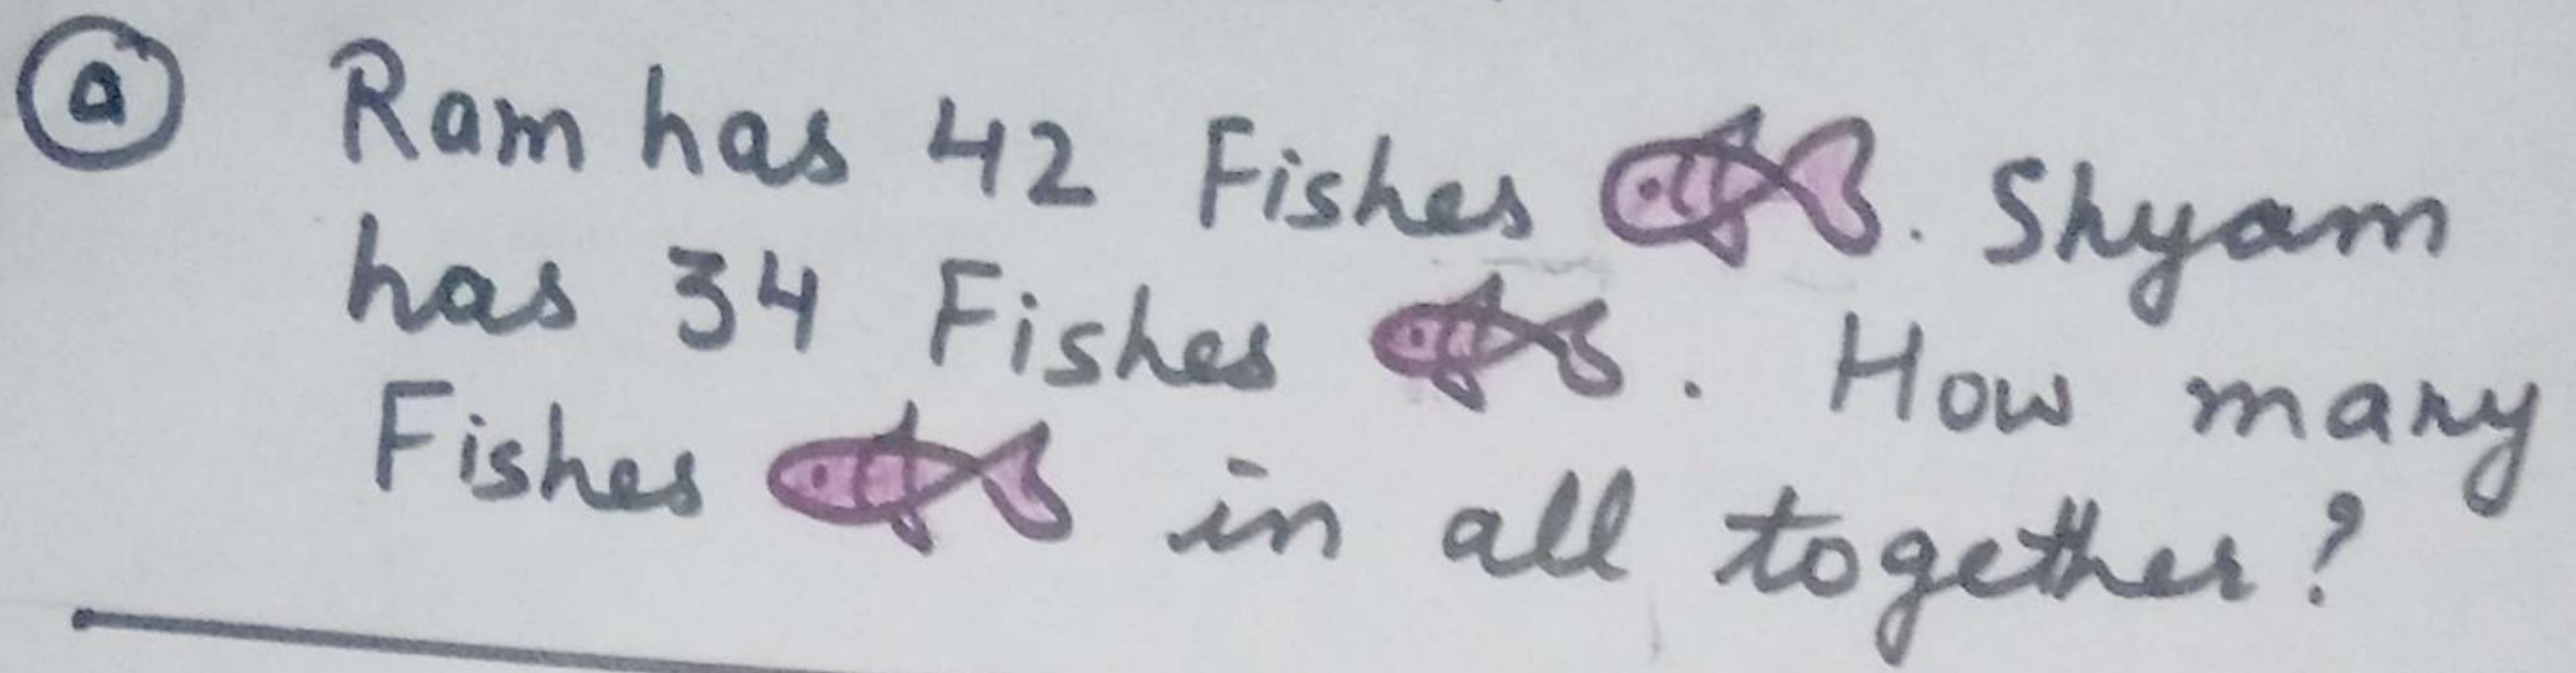 a Ram has 42 Fishes . Shyam
has 34 Fishes . How many
Fishes in all together?